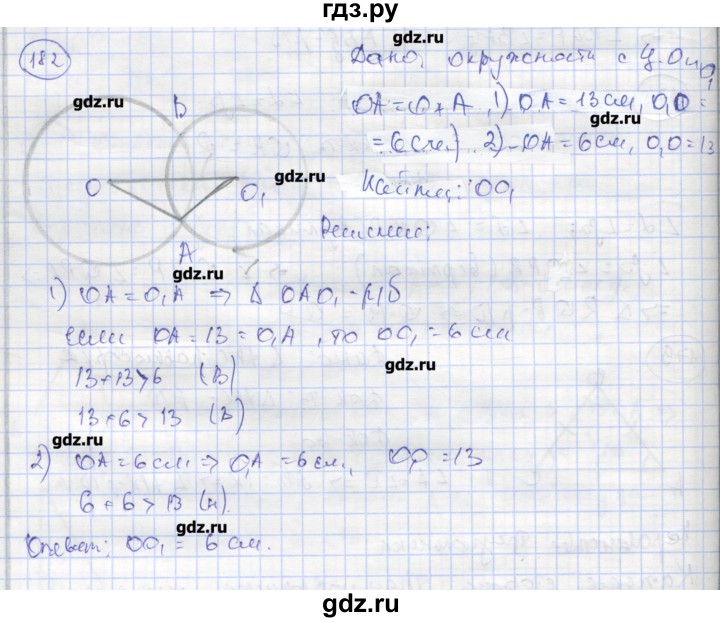 гдз.ру
182
gdz.ru
Дано: окружности с ц. O и O₁
OA = O₁A, 1) OA = 13 см, O₁O =
gdz.ru
= 6 см. 2) OA = 6 см, O₁O = 13
Найти: OO₁
Решение:
gdz.ru
B
O
O₁
A
gdz.ru
gdz.ru
1) OA = O₁A ⇒ Δ OAO₁ - р/б
Если OA = 13 = O₁A, то OO₁ = 6 см
gdz.ru
13 + 13 > 6 (В)
13 + 6 > 13 (В)
gdz.ru
2) OA = 6 см ⇒ O₁A = 6 см, OO₁ = 13
6 + 6 > 13 (н).
gdz.ru
Ответ: OO₁ = 6 см.
gdz.ru